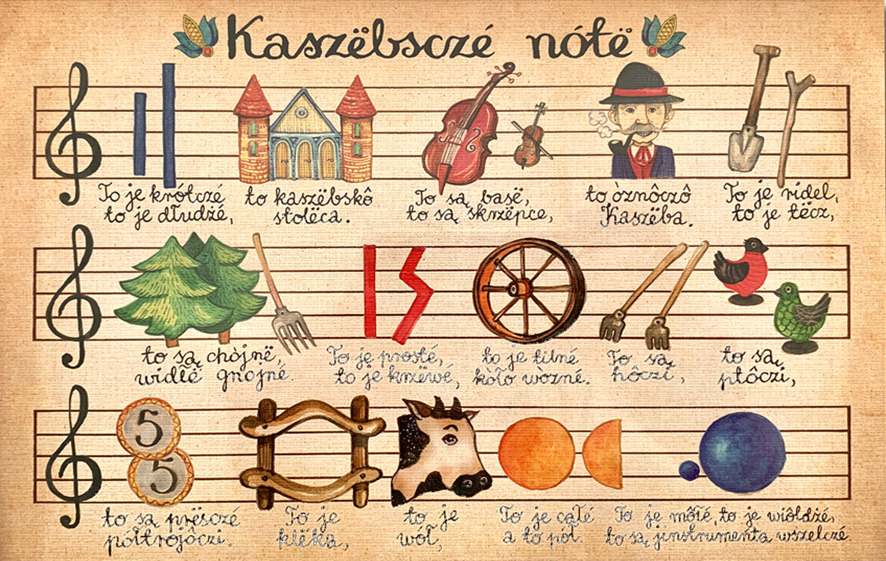 Kaszëbsczé nótë
To je krótczé
to je dłudżé,
to kaszëbskô
stolëca.
To są basë,
to są skrzëpce,
to òznôczô
Kaszëba.
To je ridel,
to je tëcz,
to są chòjnë,
widłë gnojné.
To je prosté,
to je krzëwé,
to je tilné
kòło wòzné.
To są
hôczi,
to są
ptôczi,
5
5
to są prësczé
półtrojôczi.
To je
klëka,
to je
wół,
To je całé
a to pół.
To je môłé, to je wiôldżé,
to są jinstrumenta wszelczé